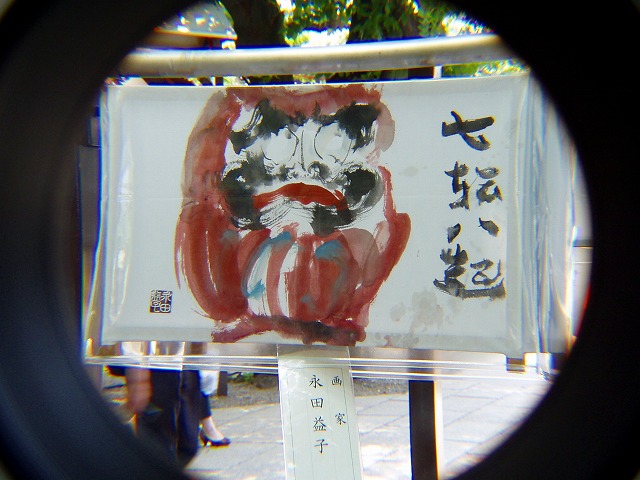 七転八起
画家
永田益子
永田